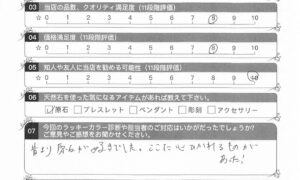 03 当店の品数、クオリティ満足度 (11段階評価)
☆ 0 1 2 3 4 5 6 7 8 9 10
04 価格満足度 (11段階評価)
☆ 0 1 2 3 4 5 6 7 8 9 10
05 知人や友人に当店を勧める可能性 (11段階評価)
☆ 0 1 2 3 4 5 6 7 8 9 10
06 天然石を使った気になるアイテムがあれば教えて下さい。
☑原石 □ブレスレット □ペンダント □彫刻 □アクセサリー
07 今回のラッキーカラー診断や担当者のご対応はいかがだったでしょうか?
ご意見やご感想をお聞かせください。
昔より原石が でした。ここに心ひかれるものが
あった!